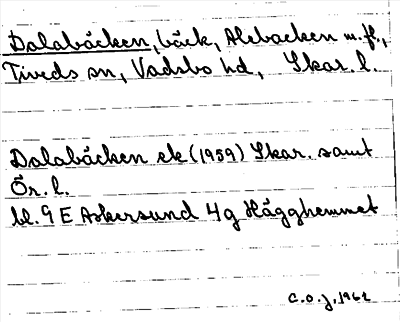 Dalabäcken, bäck, Alsbacken m.fl.,
Tiveds sn, Vadsbo hd, Skar. l.
Dalabäcken ek (1959) Skar. samt
Ör. l.
bl. 9 E Askersund 4g Hägghemmet
C.O.J. 1962